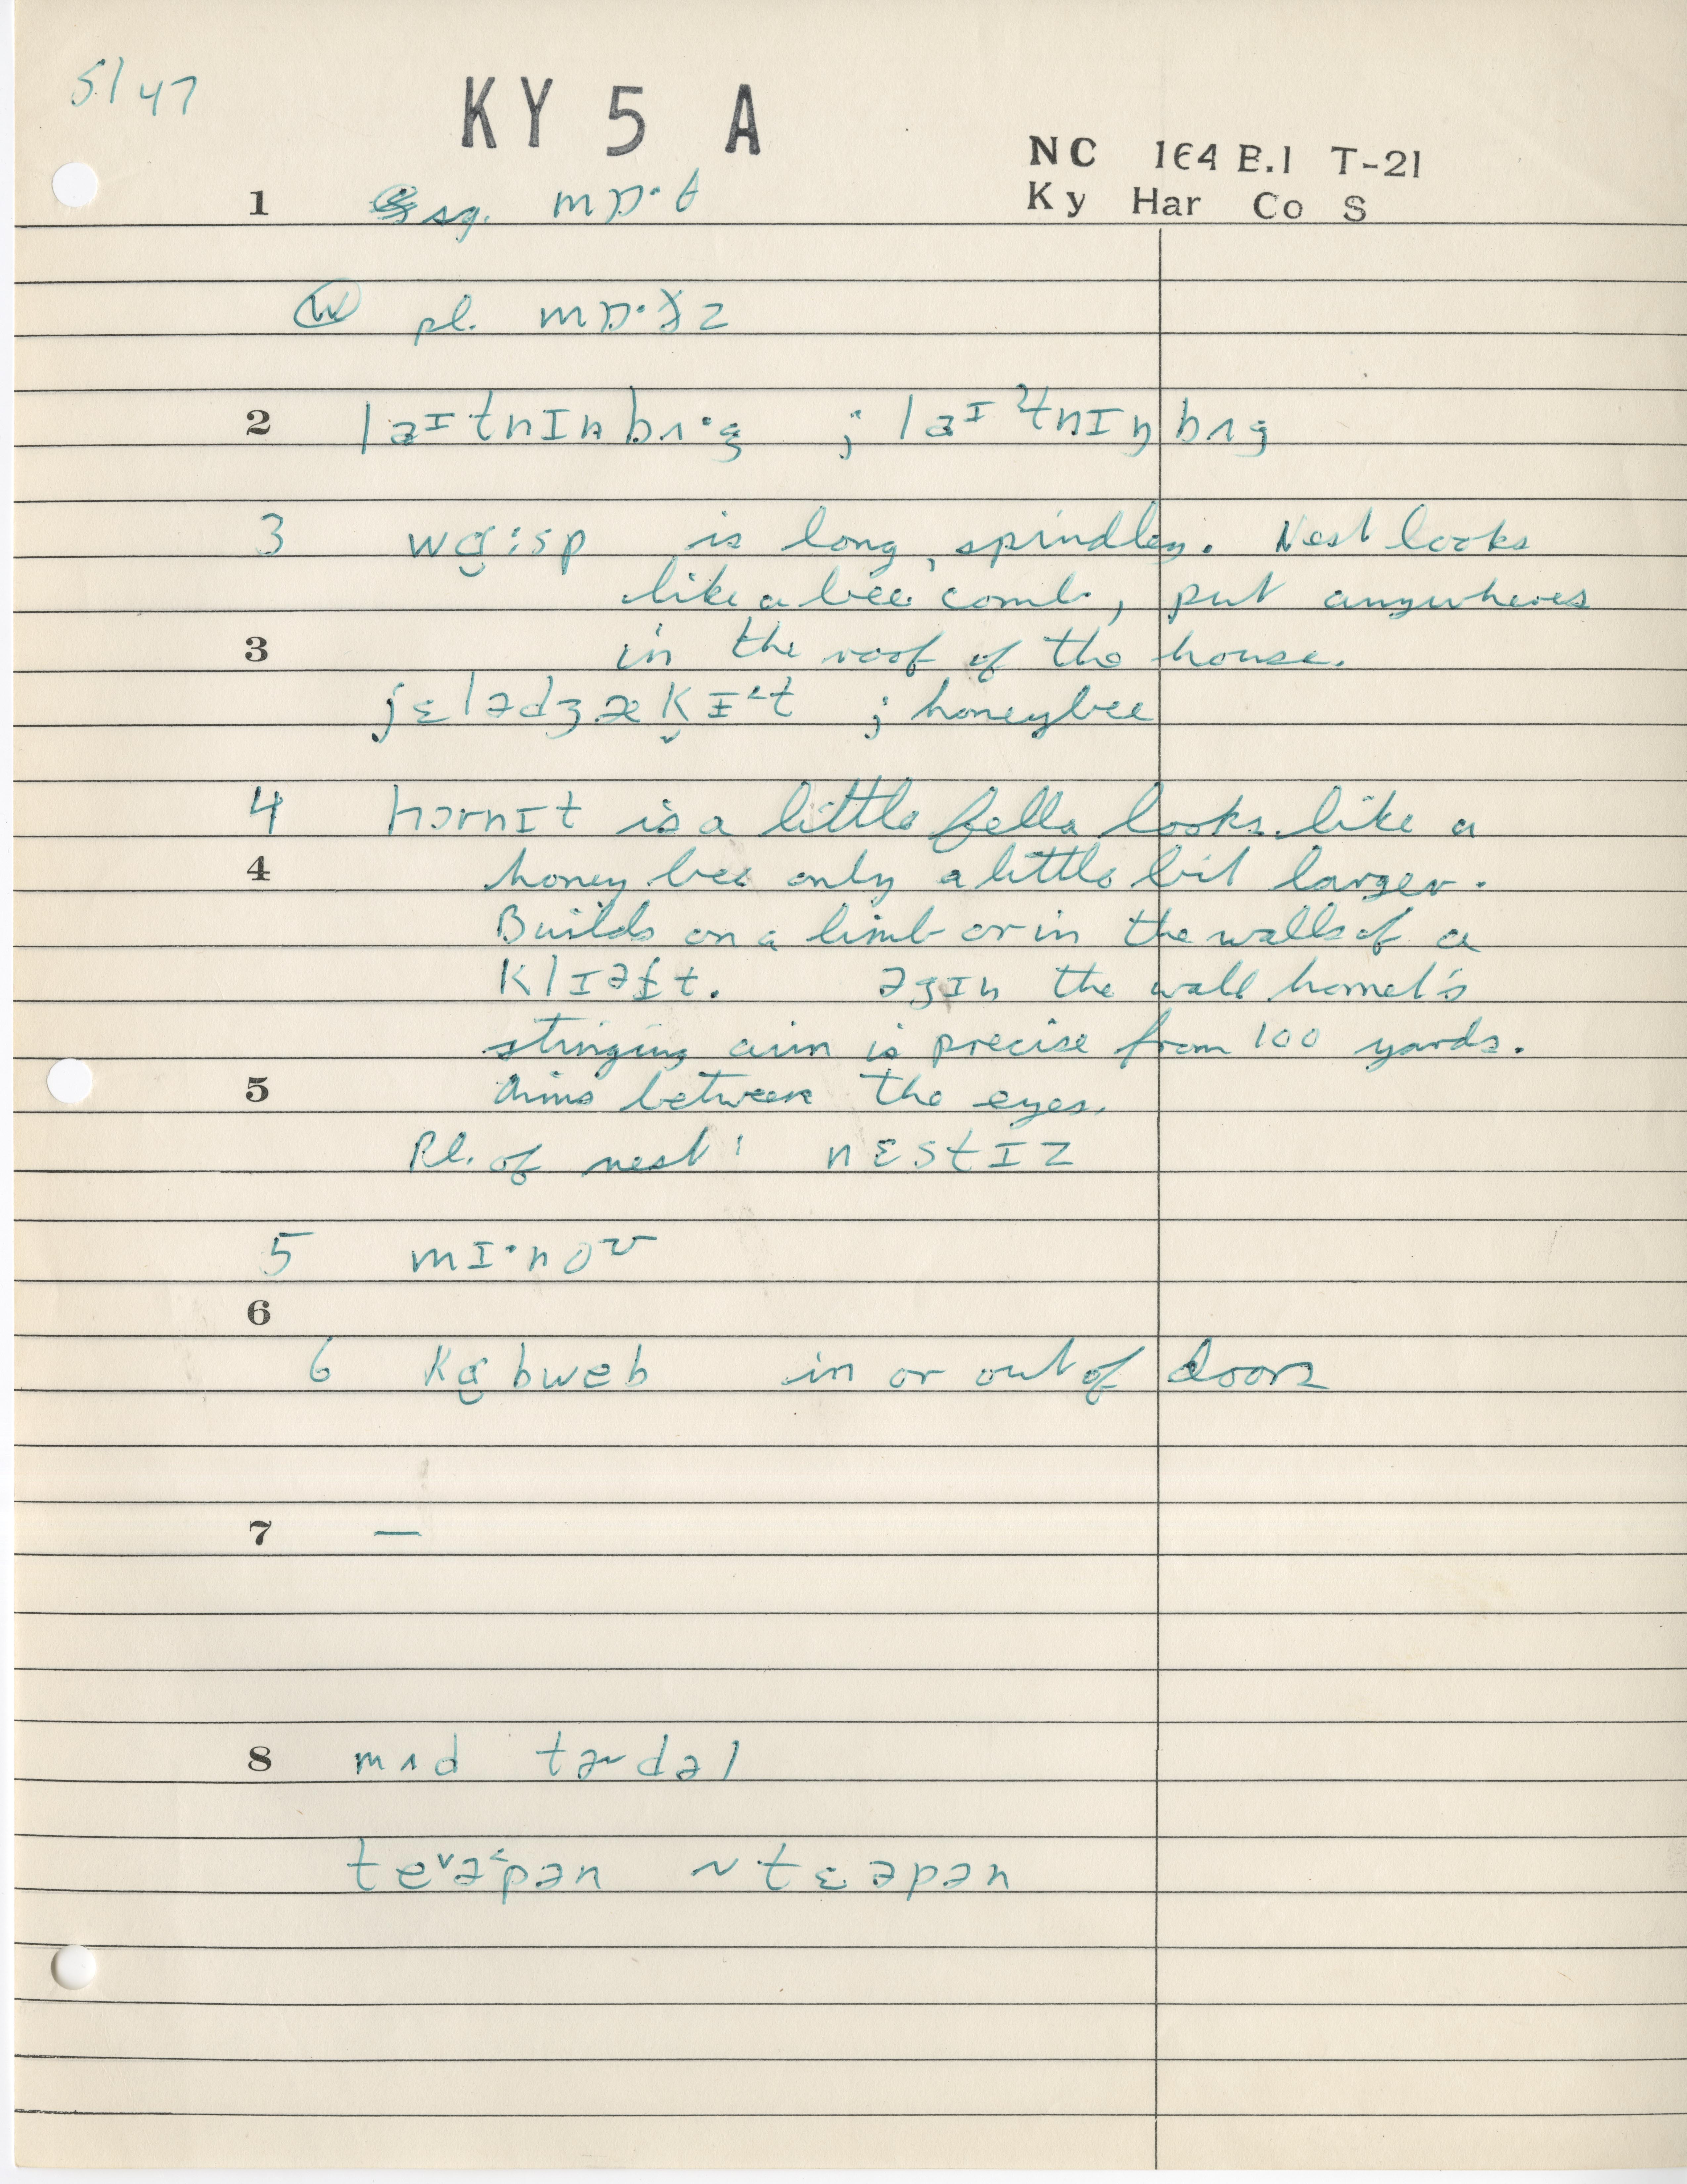 5/47
KY 5 A
NC 164 B.1 T-21
Ky Har Co S
1 sg. mɒ·t
W pl. mɒ·ɣz
2 laɪtnɪnbʌ·g ; laɪtnɪŋbʌg
3 wɑ:sp is long, spindley. Nest looks
like a bee comb, put anywheres
3 in the roof of the house.
jɛlədʒækɪt ; honeybee
4 hɔrnɪt is a little fella looks like a
4 honey bee only a little bit larger.
Builds on a limb or in the walls of a
klɪəft. əgɪn the wall hornet's
stinging aim is precise from 100 yards.
5 Aims between the eyes.
Pl. of nest: nɛstɪz
5 mɪ·noʊ
6
6 kɑbweb in or out of doors
7 —
8 mʌd tɚdəl
teəpən ~ tɛəpən